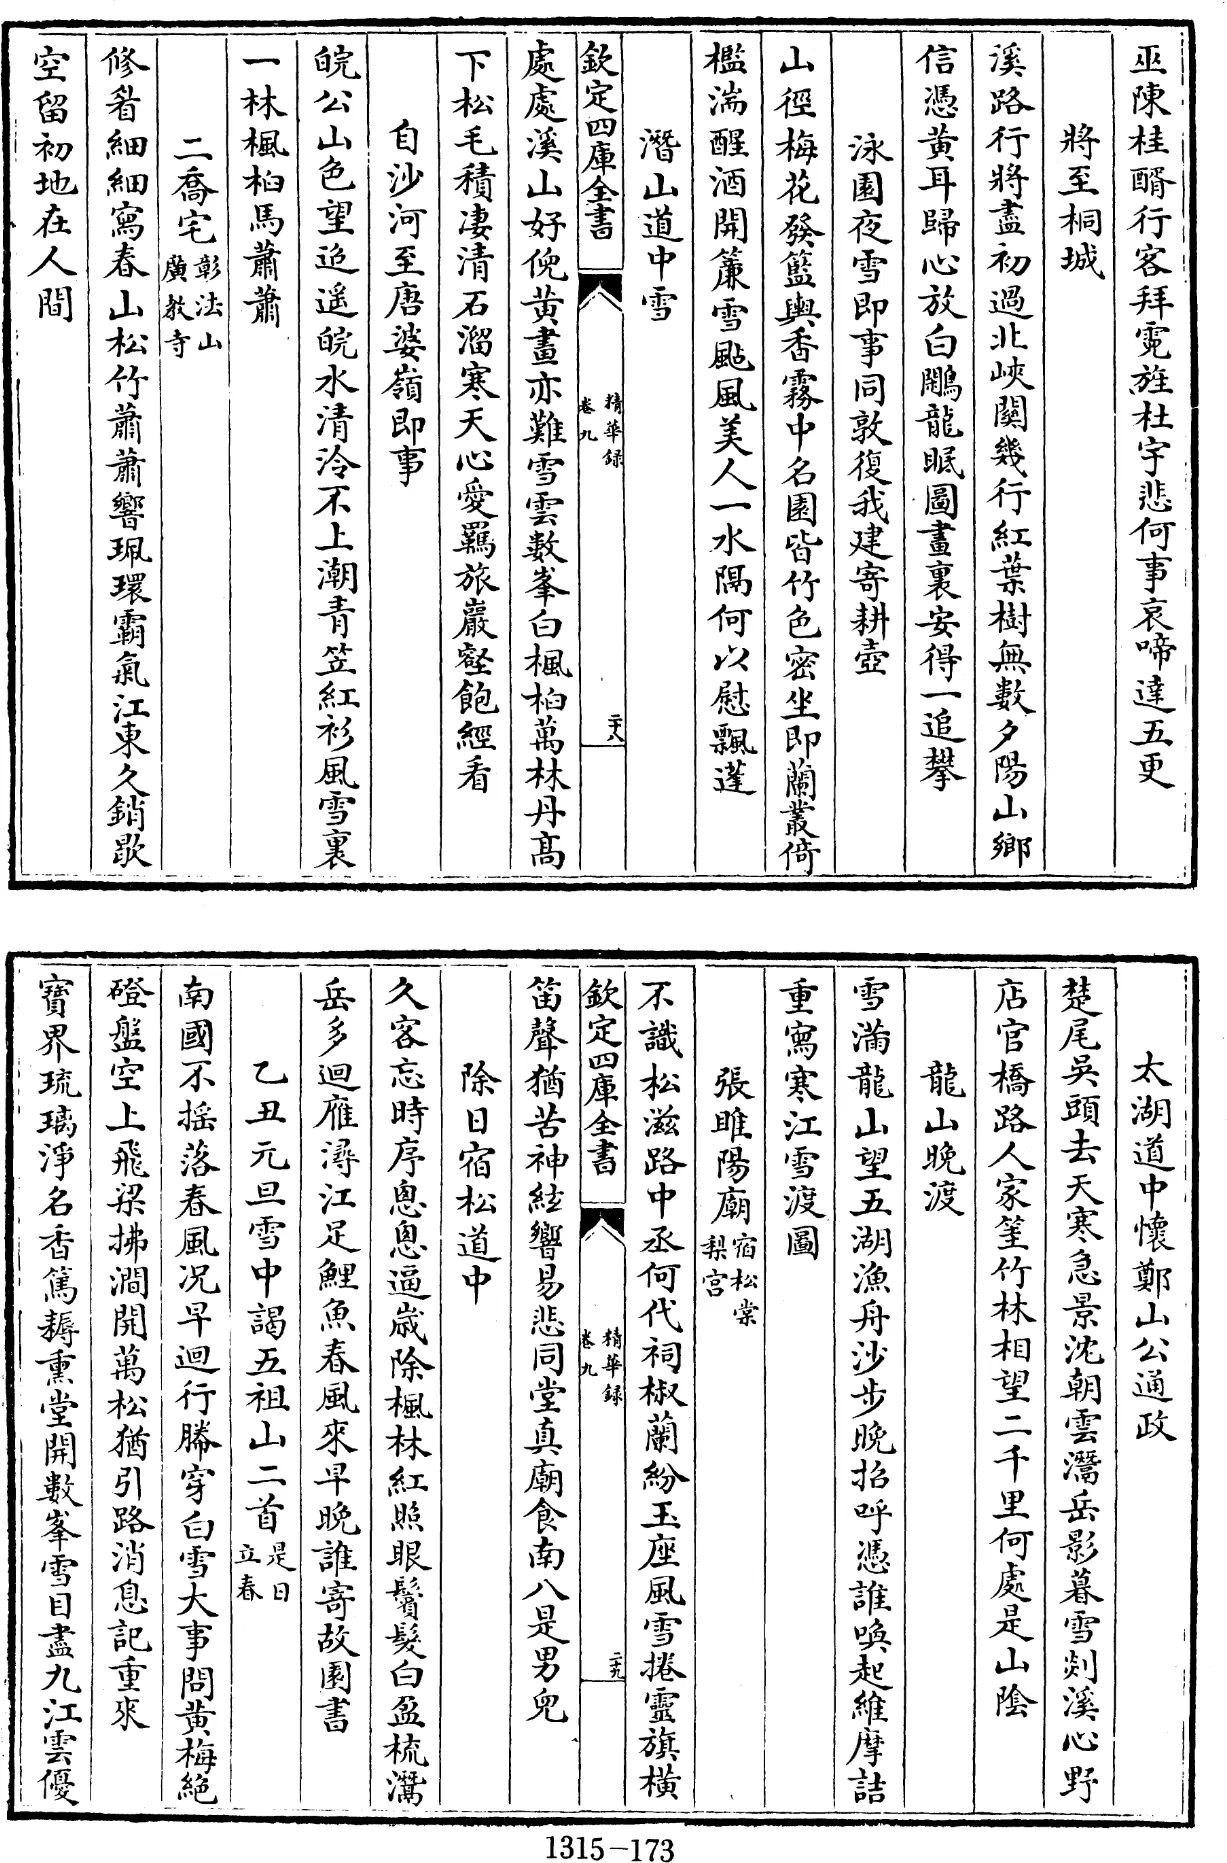 巫陳桂醑行客拜霓旌杜宇悲何事哀啼達五更
將至桐城
溪路行將盡初過北峽關幾行紅葉樹無數夕陽山鄉
信憑黃耳歸心放白鷴龍眠圖畫裏安得一追攀
泳園夜雪即事同敦復我建寄耕壺
山徑梅花發籃輿香霧中名園皆竹色密坐即蘭叢倚
檻湍醒酒開簾雪颭風美人一水隔何以慰飄蓬
潛山道中雪
欽定四庫全書
精華録
卷九
二十八
處處溪山好倪黃畫亦難雪雲數峯白楓桕萬林丹高
下松毛積凄清石溜寒天心愛羈旅巖壑飽經看
自沙河至唐婆嶺即事
皖公山色望迢遥皖水清泠不上潮青笠紅衫風雪裏
一林楓桕馬蕭蕭
二喬宅彰法山廣教寺
修眉細細寫春山松竹蕭蕭響珮環霸氣江東久銷歇
空留初地在人間
太湖道中懷鄭山公通政
楚尾吳頭去天寒急景沈朝雲灊岳影暮雪剡溪心野
店官橋路人家篁竹林相望二千里何處是山陰
龍山晚渡
雪滿龍山望五湖漁舟沙步晚招呼憑誰喚起維摩詰
重寫寒江雪渡圖
張睢陽廟宿松棠梨宫
不識松滋路中丞何代祠椒蘭紛玉座風雪捲靈旗橫
欽定四庫全書
精華録
卷九
二十九
笛聲猶苦神絃響易悲同堂真廟食南八是男兒
除日宿松道中
久客忘時序悤悤逼歲除楓林紅照眼鬢髮白盈梳灊
岳多迴雁潯江足鯉魚春風來早晚誰寄故園書
乙丑元旦雪中謁五祖山二首是日立春
南國不摇落春風况早迴行縢穿白雪大事問黃梅絶
磴盤空上飛梁拂澗開萬松猶引路消息記重來
寶界琉璃淨名香篤耨熏堂開數峯雪目盡九江雲優
1315-173